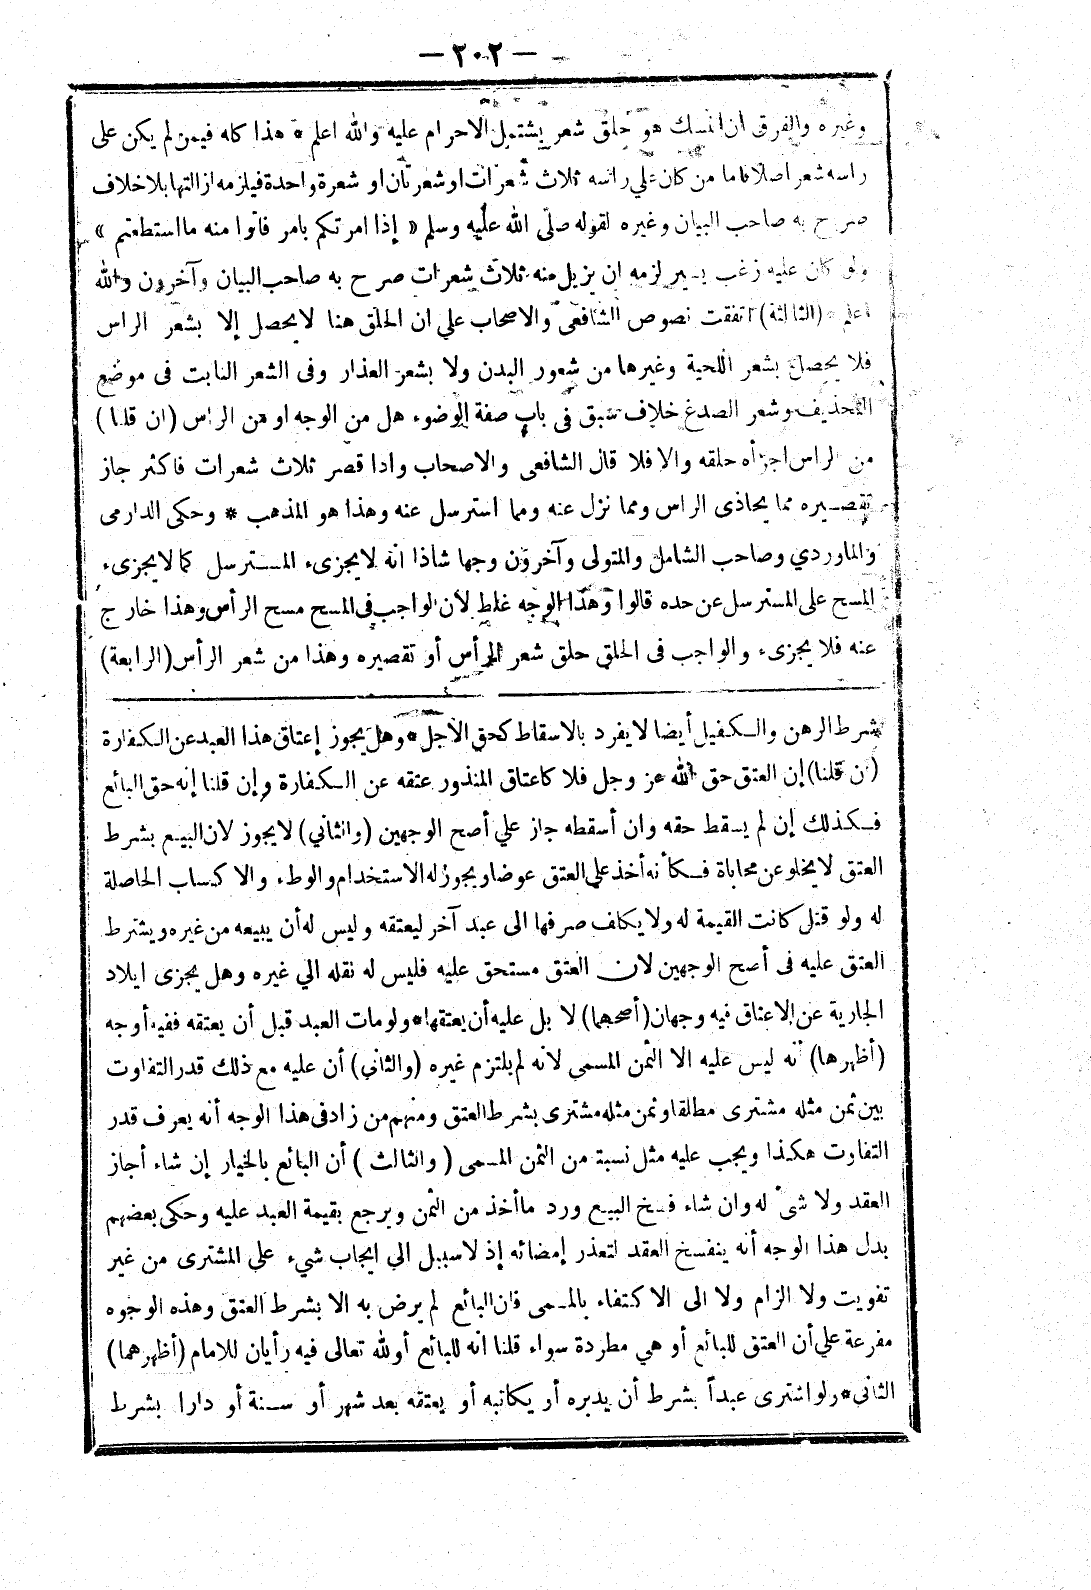 — ٢٠٢ —
وغيره والفرق ان النسك هو حلق شعر يشتمل الاحرام عليه والله اعلم * هذا كله فيمن لم يكن على
راسه شعر اصلا فاما من كان علي راسه ثلاث شعرات او شعرتان او شعرة واحدة فيلزمه ازالتها بلا خلاف
صرح به صاحب البيان وغيره لقوله صلى الله عليه وسلم « إذا امرتكم بامر فاتوا منه ما استطعتم »
ولو كان عليه زغب يسير لزمه ان يزيل منه ثلاث شعرات صرح به صاحب البيان وآخرون والله
اعلم * (الثالثة) اتفقت نصوص الشافعى والاصحاب علي ان الحلق هنا لا يحصل إلا بشعر الراس
فلا يحصل بشعر اللحية وغيرها من شعور البدن ولا بشعر العذار وفى الشعر النابت فى موضع
التحذيف وشعر الصدغ خلاف سبق فى باب صفة الوضوء هل من الوجه او من الراس (ان قلنا)
من الراس اجزأه حلقه والا فلا قال الشافعى والاصحاب واذا قصر ثلاث شعرات فاكثر جاز
تقصيره مما يحاذى الراس ومما نزل عنه ومما استرسل عنه وهذا هو المذهب * وحكى الدارمى
والماوردي وصاحب الشامل والمتولى وآخرون وجها شاذا انه لا يجزىء المسترسل كما لا يجزىء
المسح على المسترسل عن حده قالوا وهذا الوجه غلط لان الواجب فى المسح مسح الرأس وهذا خارج
عنه فلا يجزىء والواجب فى الحلق حلق شعر الرأس أو تقصيره وهذا من شعر الرأس (الرابعة)
شرط الرهن والكفيل أيضا لا يفرد بالاسقاط كحق الأجل * وهل يجوز إعتاق هذا العبد عن الكفارة
(ان قلنا) إن العتق حق الله عز وجل فلا كاعتاق المنذور عتقه عن الكفارة وإن قلنا إنه حق البائع
فكذلك إن لم يسقط حقه وان أسقطه جاز علي أصح الوجهين (والثاني) لا يجوز لان البيع بشرط
العتق لا يخلو عن محاباة فكأنه أخذ على العتق عوضا ويجوز له الاستخدام والوطء والاكساب الحاصلة
له ولو قتل كانت القيمة له ولا يكلف صرفها الى عبد آخر ليعتقه وليس له أن يبيعه من غيره ويشترط
العتق عليه فى أصح الوجهين لان العتق مستحق عليه فليس له نقله الي غيره وهل يجزى ايلاد
الجارية عن الاعتاق فيه وجهان (أصحهما) لا بل عليه أن يعتقها * ولو مات العبد قبل أن يعتقه ففيه أوجه
(أظهرها) أنه ليس عليه الا الثمن المسمى لانه لم يلتزم غيره (والثاني) أن عليه مع ذلك قدر التفاوت
بين ثمن مثله مشترى مطلقا وثمن مثله مشترى بشرط العتق ومنهم من زاد فى هذا الوجه أنه يعرف قدر
التفاوت هكذا ويجب عليه مثل نسبة من الثمن المسمى ( والثالث ) أن البائع بالخيار إن شاء أجاز
العقد ولا شىء له وان شاء فسخ البيع ورد ما أخذ من الثمن ويرجع بقيمة العبد عليه وحكى بعضهم
بدل هذا الوجه أنه ينفسخ العقد لتعذر إمضائه إذ لا سبيل الي ايجاب شيء علي المشترى من غير
تفويت ولا الزام ولا الى الاكتفاء بالمسمى فان البائع لم يرض به الا بشرط العتق وهذه الوجوه
مفرعة علي أن العتق للبائع أو هي مطردة سواء قلنا انه للبائع أو لله تعالى فيه رأيان للامام (أظهرهما)
الثانى * ولو اشترى عبداً بشرط أن يدبره أو يكاتبه أو يعتقه بعد شهر أو سنة أو دارا بشرط